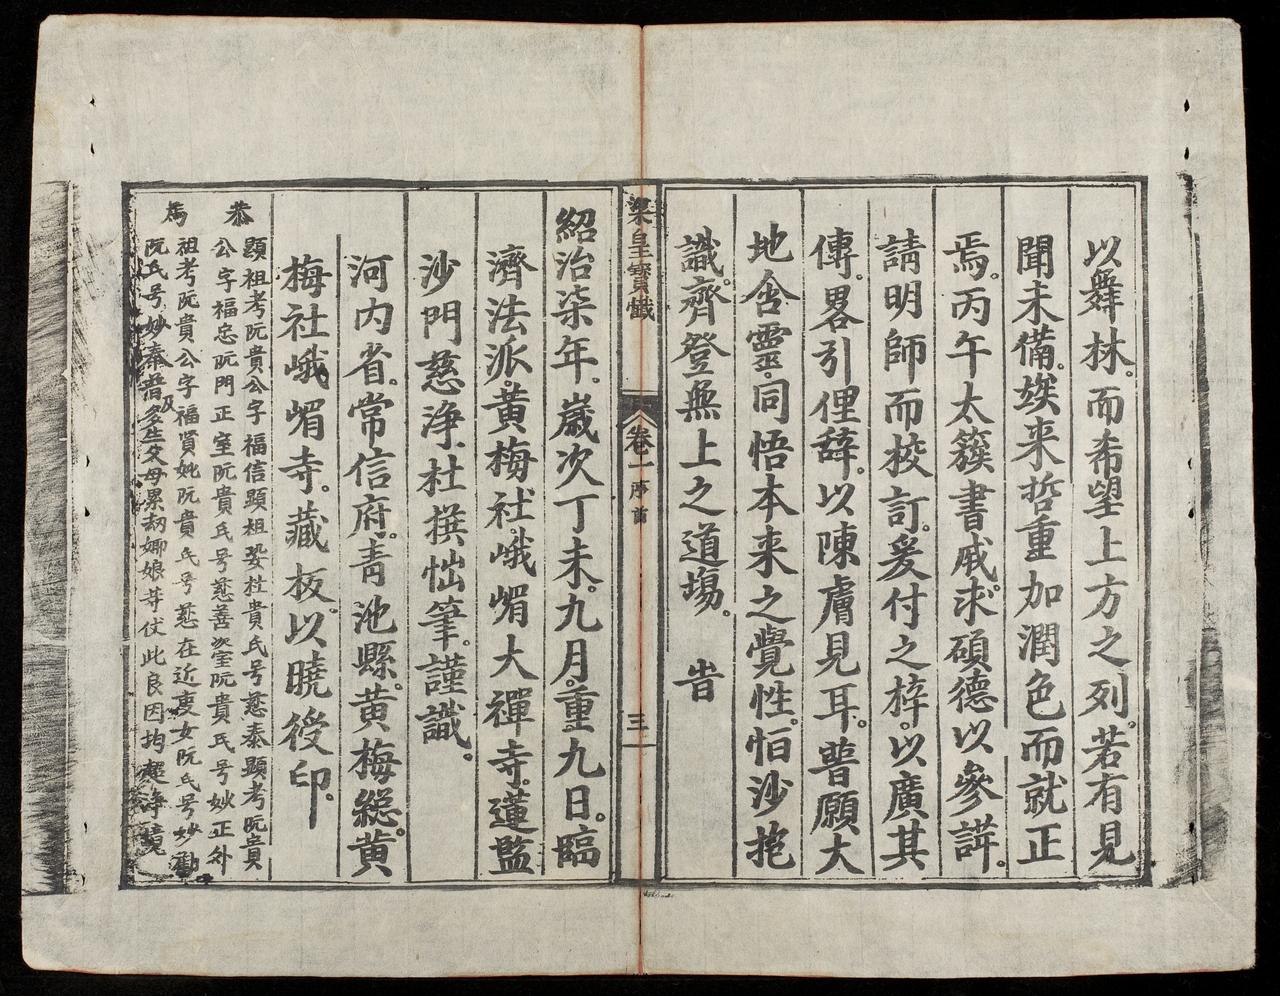 以舞林。而希望上方之列。若有見
聞未備。竢来哲重加潤色而就正
焉。丙午太簇書成。求碩德以參詳。
請明師而校訂。爰付之梓。以廣其
傳。畧引俚辞。以陳膚見耳。普願大
地含靈。同悟本来之覺性。怕沙抱
識。齊登無上之道場。 旹
梁皇寶懺 卷一序首 三
紹治柒年。歲次丁未。九月。重九日。臨
濟法派。黄梅社。峨嵋大禪寺。蓮監
沙門慈浄。杜撰惱筆。謹識。
河内省。常信府。青池縣。黄梅総。黄
梅社峨嵋寺。藏板。以曉後印。
恭 爲
顕祖考阮貴公字福信顕祖妣杜貴氏号慈泰顕考阮貴
公字福忠阮門正室阮貴氏号慈善次室阮貴氏号妙正外
祖考阮貴公字福賢妣阮貴氏号慈在近事女阮氏号妙勸
阮氏号妙秦普及多生父母累刼娜娘等仗此良因均超浄境